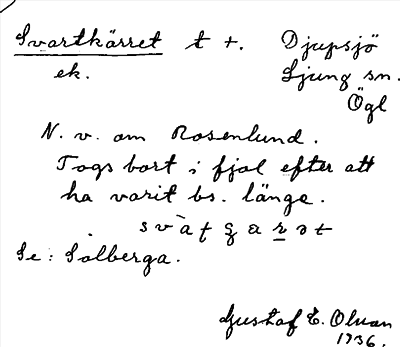 Svartkärret t +. Djupsjö
ek. Ljung sn.
Ögl
N. v. om Rosenlund.
Togs bort i fjol efter att
ha varit bs. länge.
Se: Solberga.
Gustaf E. Olsson
1936.